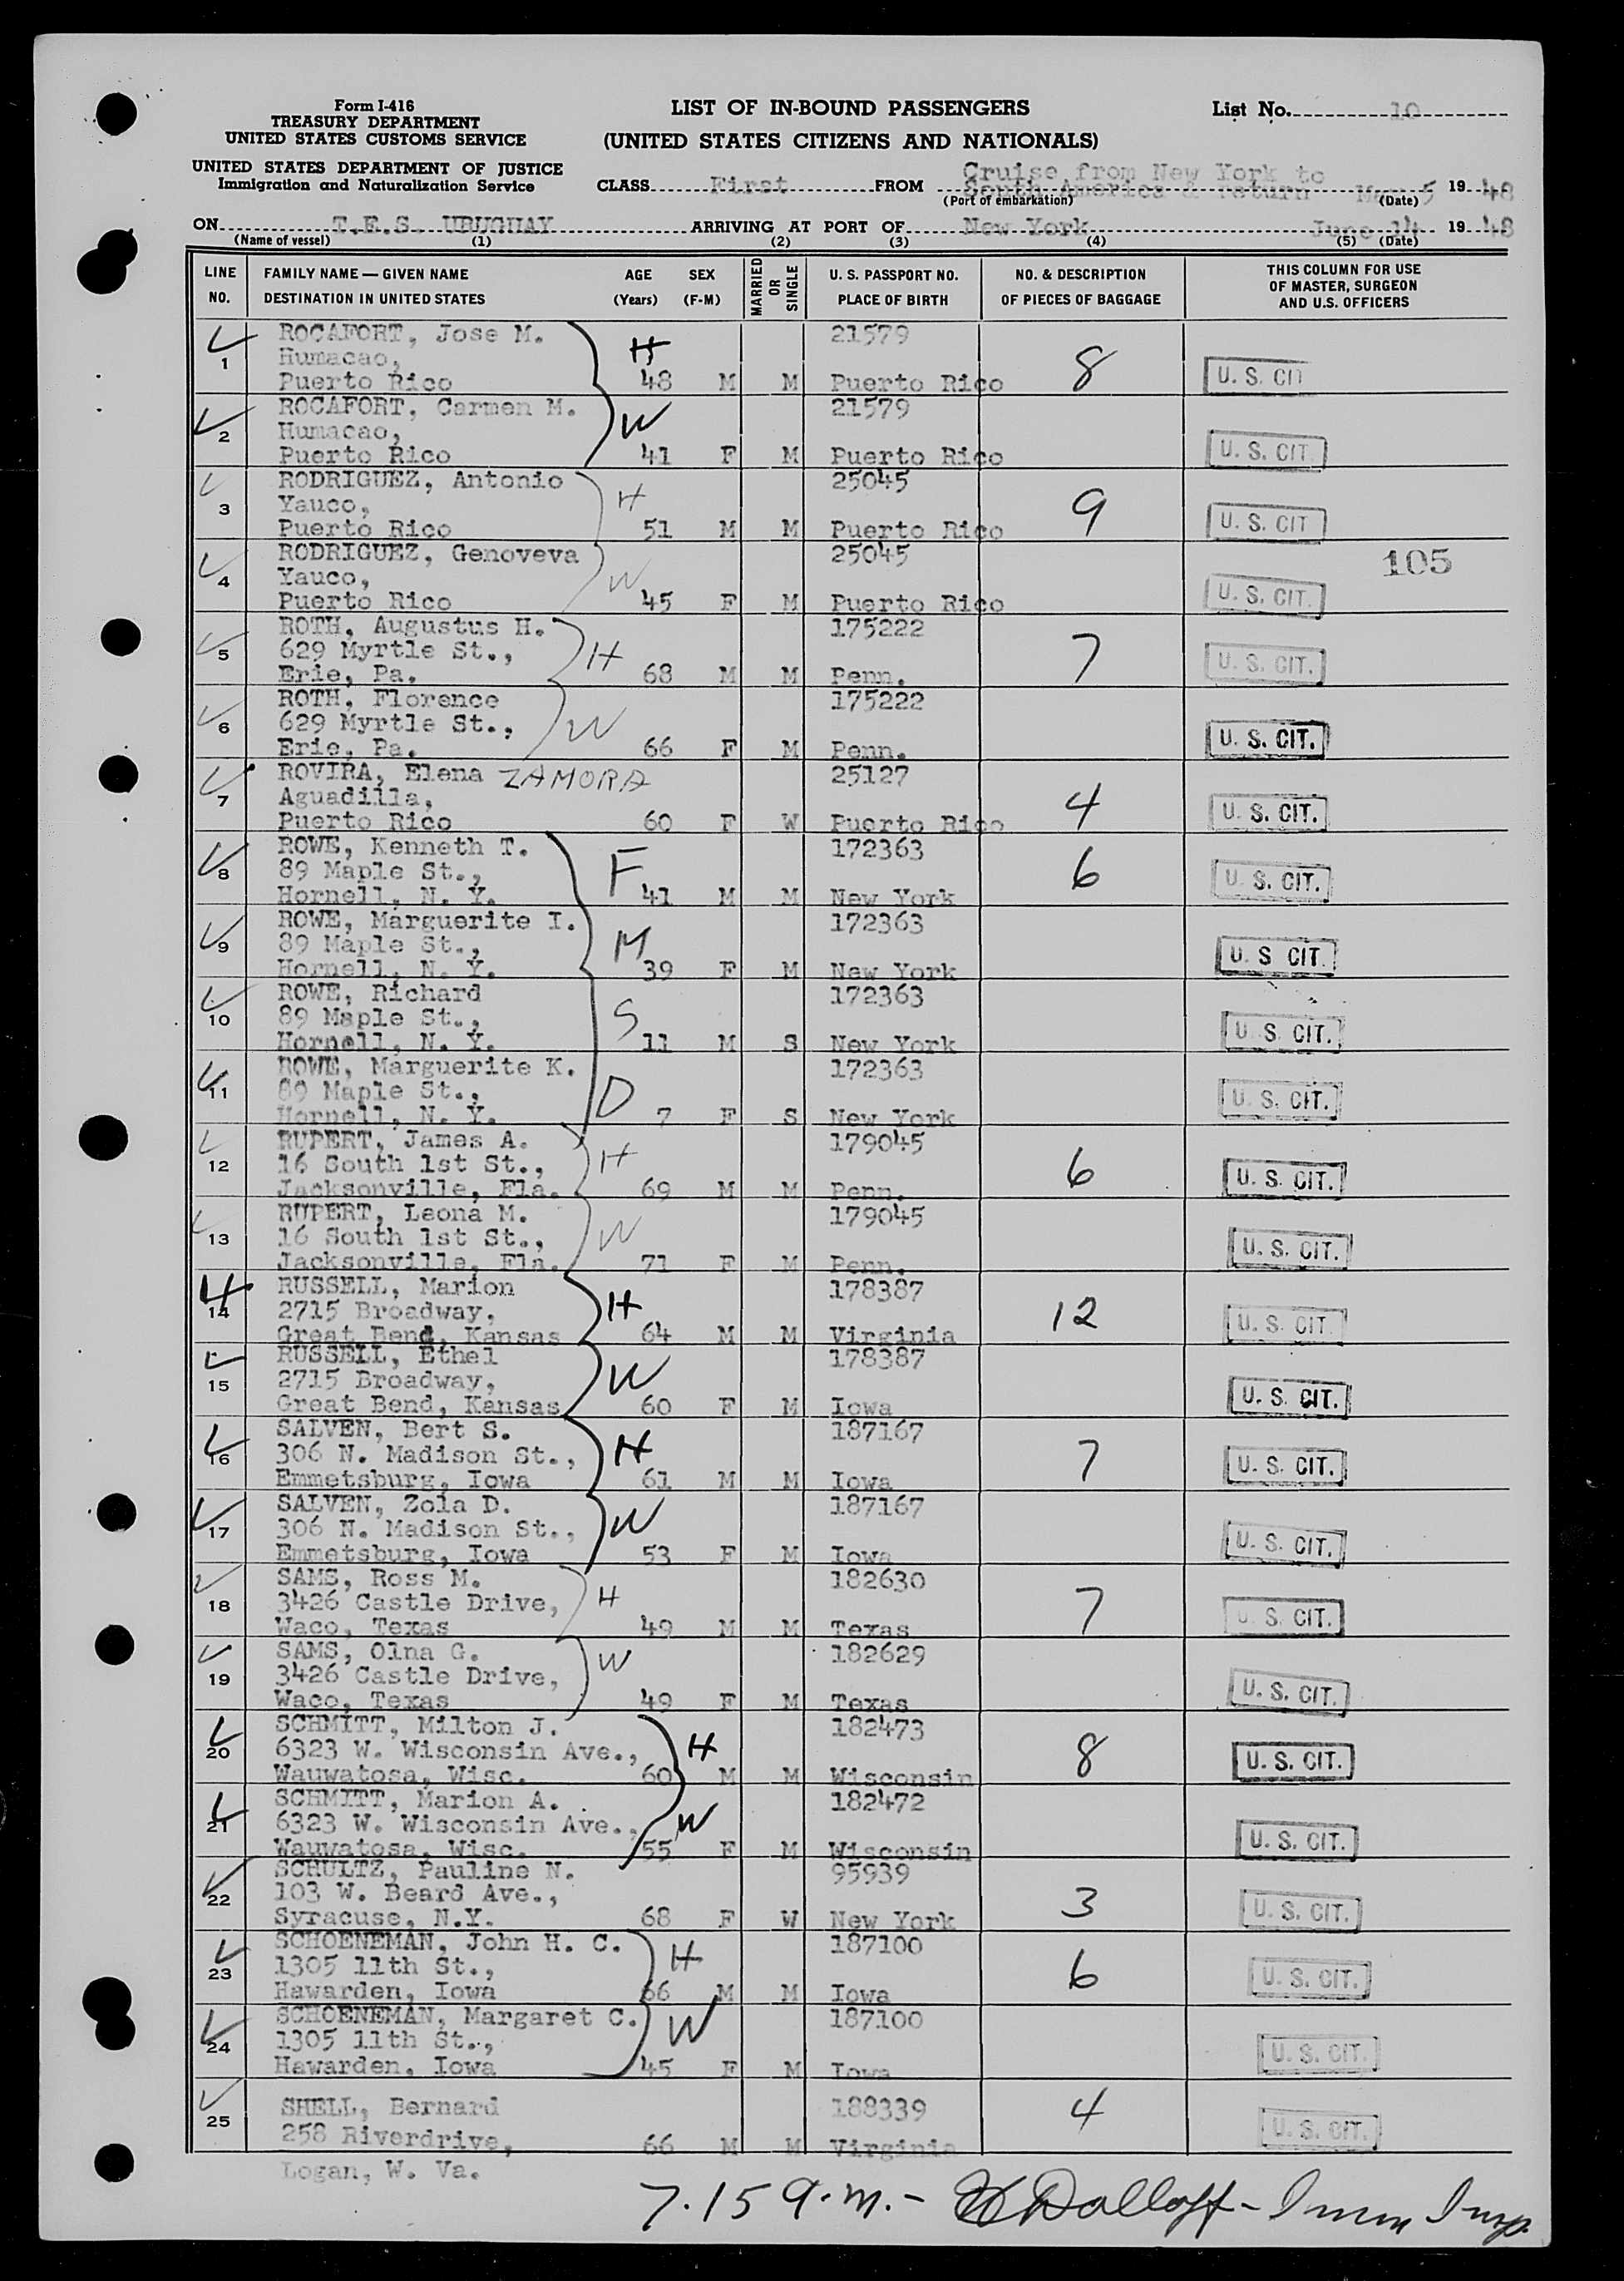 Form I-416
TREASURY DEPARTMENT
UNITED STATES CUSTOMS SERVICE
UNITED STATES DEPARTMENT OF JUSTICE
Immigration and Naturalization Service
LIST OF IN-BOUND PASSENGERS
(UNITED STATES CITIZENS AND NATIONALS)
List No. 10
CLASS First FROM Cruise from New York to South America & return 5 19 48
(Port of embarkation) (Date)
ON T.E.S. URUGUAY ARRIVING AT PORT OF New York June 14 19 48
(Name of vessel) (1) (2) (3) (4) (5) (Date)
LINE NO. FAMILY NAME — GIVEN NAME DESTINATION IN UNITED STATES AGE (Years) SEX (F-M) MARRIED OR SINGLE U. S. PASSPORT NO. PLACE OF BIRTH NO. & DESCRIPTION OF PIECES OF BAGGAGE THIS COLUMN FOR USE OF MASTER, SURGEON AND U.S. OFFICERS
ROCAFORT, Jose M. 21579
1 Humacao, H 8 U. S. CIT
Puerto Rico 48 M M Puerto Rico
ROCAFORT, Carmen M. 21579
2 Humacao, W U. S. CIT
Puerto Rico 41 F M Puerto Rico
RODRIGUEZ, Antonio 25045
3 Yauco, H 9 U. S. CIT
Puerto Rico 51 M M Puerto Rico
RODRIGUEZ, Genoveva 25045 105
4 Yauco, W U. S. CIT.
Puerto Rico 45 F M Puerto Rico
ROTH, Augustus H. 175222
5 629 Myrtle St., H 7 U. S. CIT.
Erie, Pa. 68 M M Penn.
ROTH, Florence 175222
6 629 Myrtle St., W U. S. CIT.
Erie, Pa. 66 F M Penn.
ROVIRA, Elena ZAMORA 25127
7 Aguadilla, 4 U. S. CIT.
Puerto Rico 60 F W Puerto Rico
ROWE, Kenneth T. 172363
8 89 Maple St., F 6 U. S. CIT.
Hornell, N. Y. 41 M M New York
ROWE, Marguerite I. 172363
9 89 Maple St., M U. S CIT.
Hornell, N. Y. 39 F M New York
ROWE, Richard 172363
10 89 Maple St., S U. S. CIT.
Hornell, N. Y. 11 M S New York
ROWE, Marguerite K. 172363
11 89 Maple St., D U. S. CIT.
Hornell, N. Y. 7 F S New York
RUPERT, James A. 179045
12 16 South 1st St., H 6 U. S. CIT.
Jacksonville, Fla. 69 M M Penn.
RUPERT, Leona M. 179045
13 16 South 1st St., W U. S. CIT.
Jacksonville, Fla. 71 F M Penn.
RUSSELL, Marion 178387
14 2715 Broadway, H 12 U. S. CIT.
Great Bend, Kansas 64 M M Virginia
RUSSELL, Ethel 178387
15 2715 Broadway, W U. S. CIT.
Great Bend, Kansas 60 F M Iowa
SALVEN, Bert S. 187167
16 306 N. Madison St., H 7 U. S. CIT.
Emmetsburg, Iowa 61 M M Iowa
SALVEN, Zola D. 187167
17 306 N. Madison St., W U. S. CIT.
Emmetsburg, Iowa 53 F M Iowa
SAMS, Ross M. 182630
18 3426 Castle Drive, H 7 U. S. CIT.
Waco, Texas 49 M M Texas
SAMS, Olna G. 182629
19 3426 Castle Drive, W U. S. CIT.
Waco, Texas 49 F M Texas
SCHMITT, Milton J. 182473
20 6323 W. Wisconsin Ave., H 8 U. S. CIT.
Wauwatosa, Wisc. 60 M M Wisconsin
SCHMITT, Marion A. 182472
21 6323 W. Wisconsin Ave., W U. S. CIT.
Wauwatosa, Wisc. 55 F M Wisconsin
SCHULTZ, Pauline N. 95939
22 103 W. Beard Ave., 3 U. S. CIT.
Syracuse, N.Y. 68 F W New York
SCHOENEMAN, John H. C. 187100
23 1305 11th St., H 6 U. S. CIT.
Hawarden, Iowa 66 M M Iowa
SCHOENEMAN, Margaret C. 187100
24 1305 11th St., W U. S. CIT.
Hawarden, Iowa 45 F M Iowa
SHELL, Bernard 188339 4
25 258 Riverdrive, 66 M M Virginia U. S. CIT.
Logan, W. Va.
7.15 a.m. - Dalloff - Imm Insp.